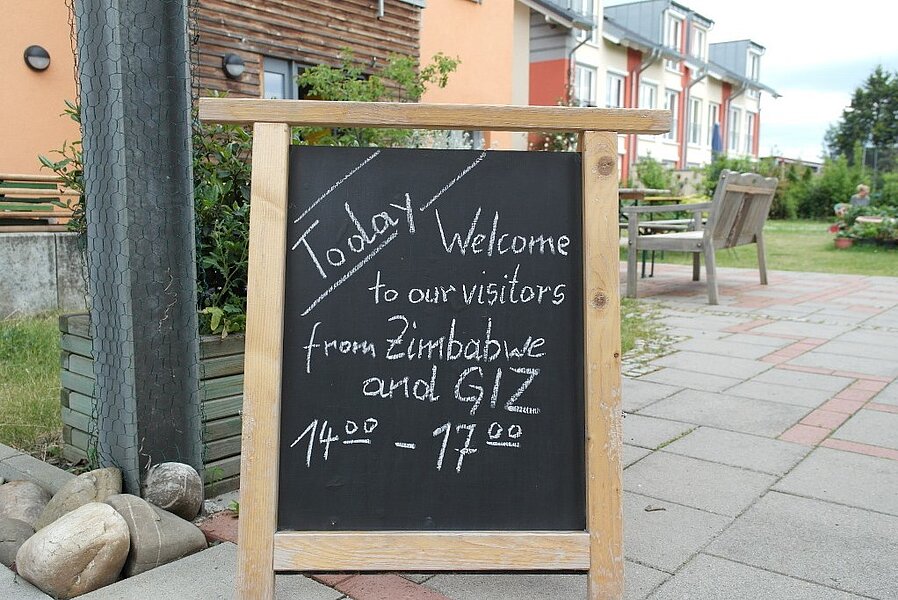 Today
Welcome
to our visitors
from Zimbabwe
and GIZ
14⁰⁰ – 17⁰⁰